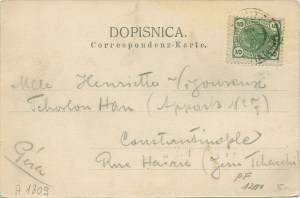 DOPISNICA.
Correspondenz-Karte.
5 5
Mlle Henriette Vigoureux
Tchoclou Han (Appart No 7)
Constantinople
Rue (
Péra
A 1809
PF
1200 5.-